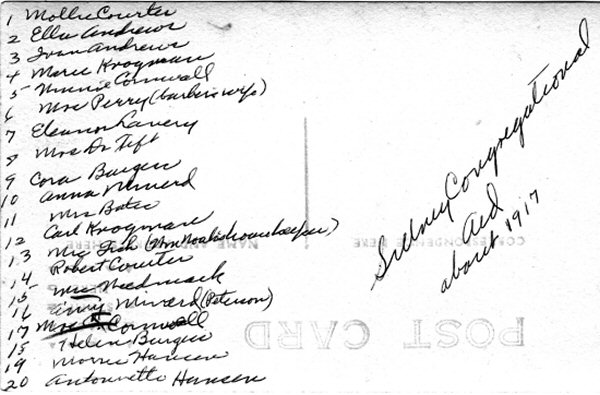 1 Mollie Courter
2 Ella Andrews
3 Ivan Andrews
4 Marie Krogman
5 Minnie Cornwall
6 Mrs Perry (barber's wife)
7 Eleanor Lavery
8 Mrs Dr Tift
9 Cora Burgess
10 Anna Minard
11 Mrs Bates
12 Carl Krogman
13 Mrs Fish (housekeeper)
14 Robert Courter
15 Mrs
16 Minard (Peterson)
17 Cornwall
18 Helen Burgess
19 Morris Hansen
20 Antoinette Hansen
Sidney Congregational
Aid
about 1917
CORRESPONDENCE HERE
NAME AND ADDRESS HERE
POST CARD